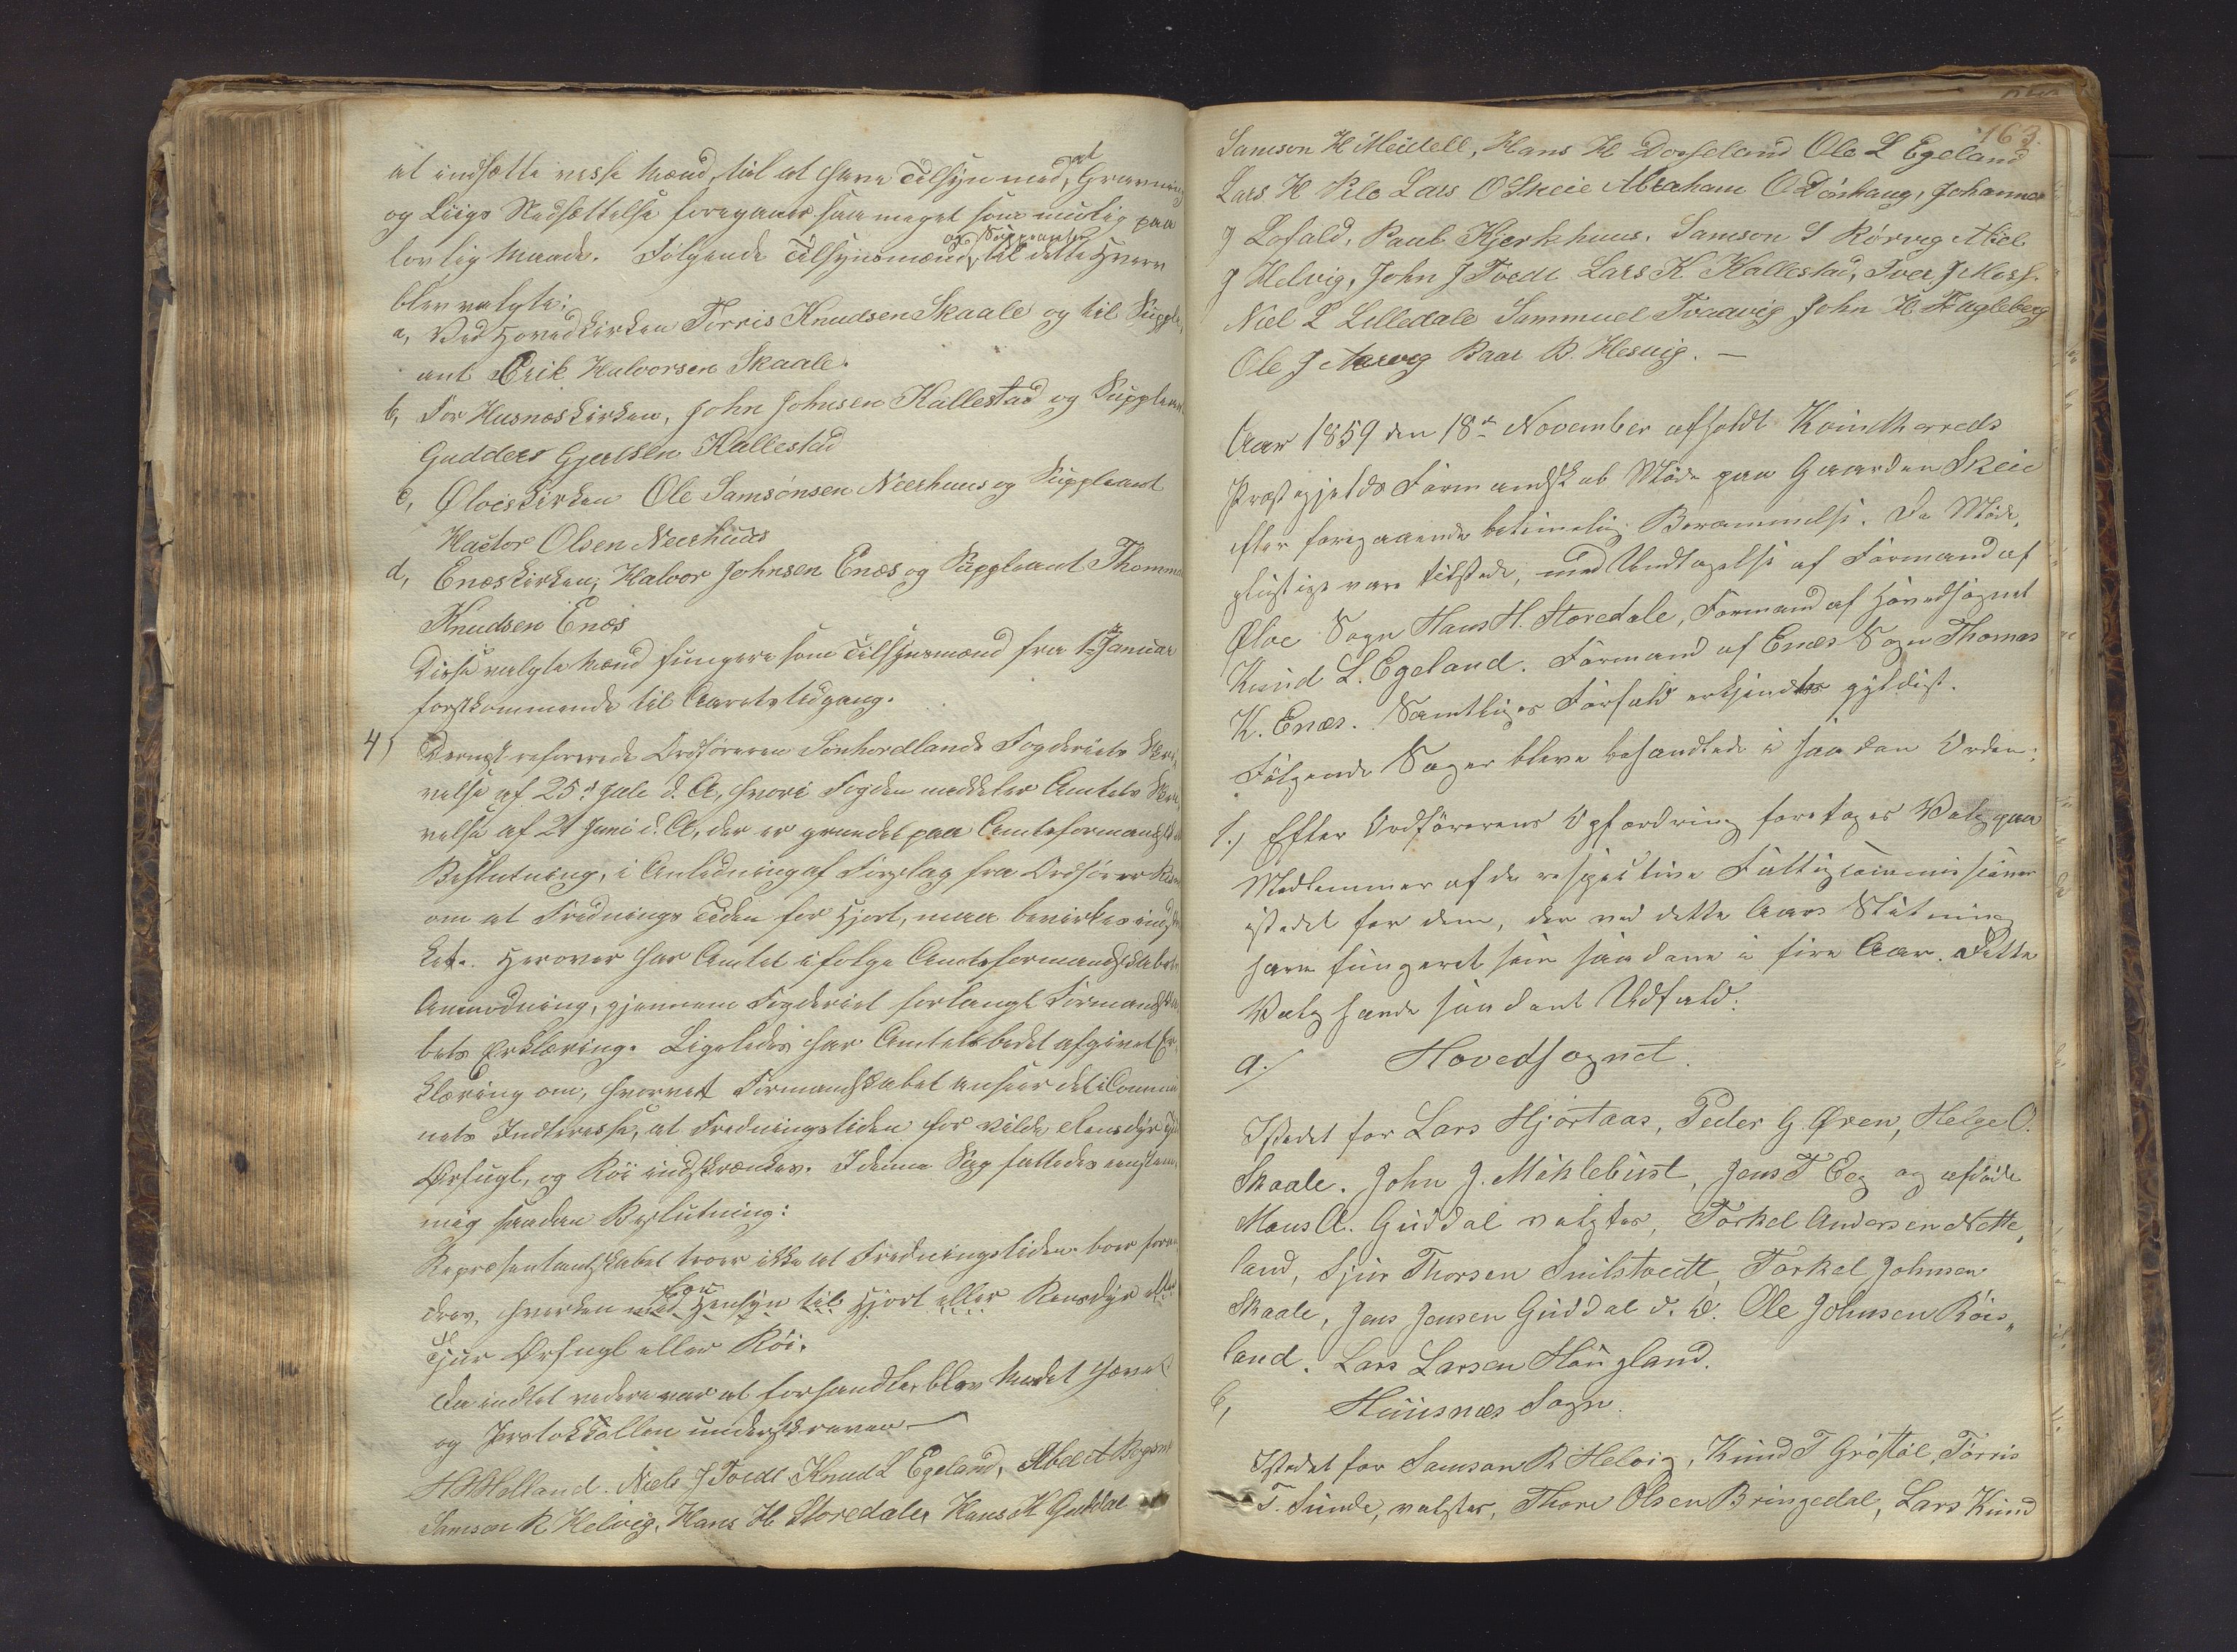 at indsætte visse Mænd, til at have Tilsyn med, at Gravning
og Liigs Nedsættelse foregaaer saa meget som mulig paa
lovlig Maade. Følgende Tilsynsmænd, og Suppleanter til dette Hverv
blev valgte:
a, Ved Hovedkirken Torris Knudsen Skaale og til Supple-
ant Erik Halvorsen Skaale.
b, For Husnæskirken, John Johnsen Kallestad og Suppleant
Gjertsen Kallestad
c, Ølveskirken Ole Samsonsen Neerhuus og Suppleant
Olsen Neerhuus
d, Enæskirken, Halvor Johnsen Enæs og Suppleant Thommas
Knudsen Enæs
Disse valgte Mænd fungere som Tilsynsmænd fra 1ste Januar
førstkommende til Aarets Udgang.
4) Dernæst refererede Ordføreren Sønhordlands Fogderiets Skri,
velse af 25d Juli d. A, hvori Fogden meddeler Amtets Skri,
velse af 21 Juni d. A, der er grundet paa Amtsformandskabets
Beslutning, i Anledning af Forslag fra Ordfører
om at Frednings Tiden for Hjort, maa bevirkes indskræn
ket. Herover har Amtet ifølge Amtsformandskabets
Anmodning, gjennem Fogderiet forlangt Formandska
bets Erklæring. Ligeledes har Amtet bedet afgivet Er,
klæring om, hvorvidt Formandskabet anseer det i Commu
nets Interesse, at Fredningstiden for vilde Rensdyr Tjur
Ørfugl, og Röi indskrænkes. I denne Sag fattedes eenstem,
mig saadan Beslutning:
Repræsentantskabet troer ikke at Fredningstiden bör foran
dres, hverken med Hensyn til for Hjort eller Rensdyr eller
Tjur Ørfugl eller Röi.
Da indtet videre var at forhandle, blev Mødet hævet
og Protokkollen underskreven
Holland. Niels J Tvedt Knud L Egeland, Abel
Samson R Helvig, Hans H Storedale, Hans H Guddal
163.
Samson H Meidell, Hans H Dosseland Ole L Egeland
Lars H Lars O Skeie Abraham O Johannes
J Lofald, Paul Kjerkhuus. Samson S Rörvig
J Helvig, John J Tvedt Lars K Kallestad, Iver J
Niel L Lilledale Sammuel Traavig John H Fugleberg
Ole J Baar B. Hesvig. —
Aar 1859 den 18de November afholdt Kvindherreds
Præstegjelds Formandskab Möde paa Gaarden Skeie
efter foregaaende betimelig Berammelse. De Möde,
pligtige vare tilstede, med Undtagelse af Formand af
Ølve Sogn Hans H. Storedale, Formand af Hovedsognet
Knud L. Egeland. Formand af Enæs Sogn Thomas
K. Enæs. Samtliges Forfald erkjendtes gyldigt.
Fölgende Sager bleve behandlede i saadan Orden:
1.) Efter Ordförerens Opfordring foretoges Valg paa
Medlemmer af de respective Fattigcommissioner
istedet for dem, der ved dette Aars Slutning
have fungeret som saadane i fire Aar. Dette
Valg havde saadant Udfald:
a.) Hovedsognet.
Istedet for Lars Hjortaas, Peder G. Øren, Helge O.
Skaale. John J. Möklebust, Jens T Eeg og afdöde
Mons A. Guddal valgtes, Torkel Andersen Nette,
land, Sjur Thorsen Snilstvedt, Torkel Johnsen
Skaale, Jens Jensen Guddal d. Æ. Ole Johnsen Röis,,
land. Lars Larsen Haugland.
b, Huusnæs Sogn.
Istedet for Samson R Helvig, Knud T Gröstöl, Torris
T. Sunde, valgtes, Thore Olsen Bringedal, Lars Knud